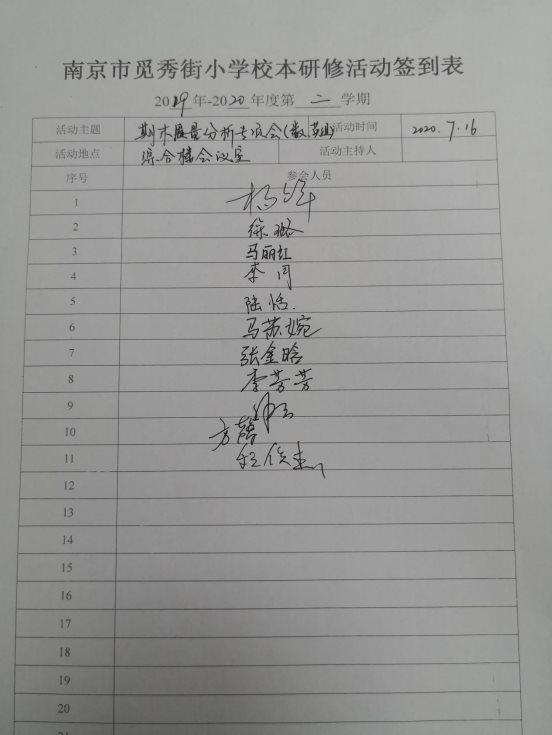 南京市觅秀街小学校本研修活动签到表
2019年-2020年度第二学期
活动主题 期末质量分析专项会(数学组) 活动时间 2020.7.16
活动地点 综合楼会议室 活动主持人
序号 参会人员
1
2 徐璐
3 马丽红
4 李闫
5 陆恬
6 马苏婉
7 张金晗
8 李芳芳
9
10 方蓓
11
12
13
14
15
16
17
18
19
20